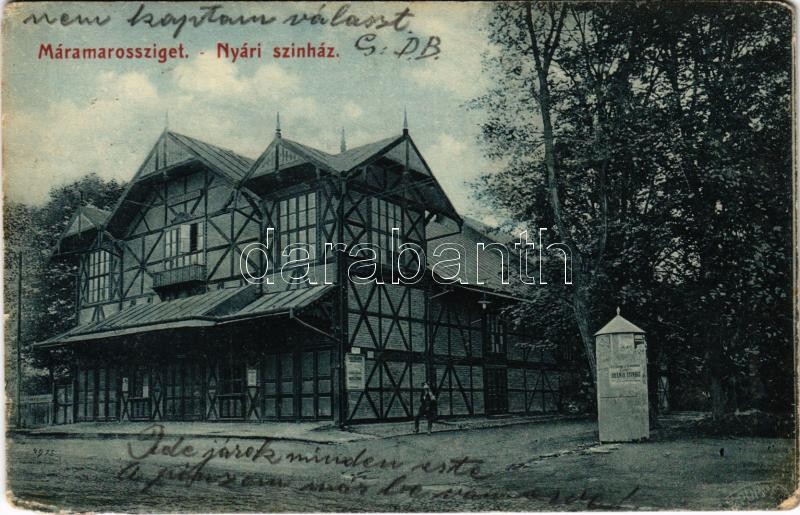 nem kaptam választ
Máramarossziget. - Nyári szinház.
G. DB.
darabanth
Ide járok minden este
A pénzem már be van